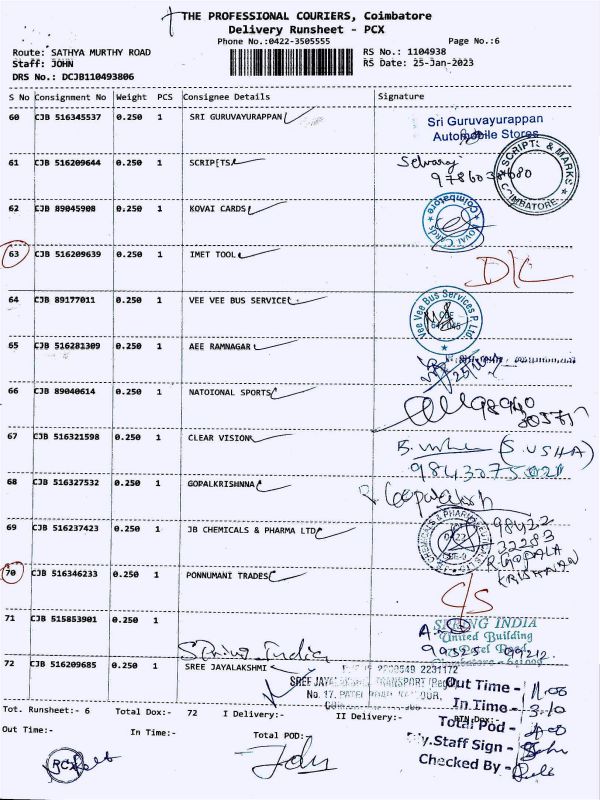 THE PROFESSIONAL COURIERS, Coimbatore
Delivery Runsheet - PCX
Phone No.:0422-3505555 Page No.:6
Route: SATHYA MURTHY ROAD RS No.: 1104938
Staff: JOHN RS Date: 25-Jan-2023
DRS No.: DCJB110493806
S No Consignment No Weight PCS Consignee Details Signature
60 CJB 516345537 0.250 1 SRI GURUVAYURAPPAN
Sri Guruvayurappan
Automobile Stores
61 CJB 516209644 0.250 1 SCRIPETS
Selvaraj
SCRIPTS & MARKS
COIMBATORE
62 CJB 89045908 0.250 1 KOVAI CARDS
KOVAI CARDS Coimbatore
63 CJB 516209639 0.250 1 IMET TOOL
D/C
64 CJB 89177011 0.250 1 VEE VEE BUS SERVICE
Vee Vee Bus Services P. Ltd
65 CJB 516281309 0.250 1 AEE RAMNAGAR
66 CJB 89040614 0.250 1 NATOIONAL SPORTS
67 CJB 516321598 0.250 1 CLEAR VISION
(S. USHA)
68 CJB 516327532 0.250 1 GOPALKRISHNNA
R. Gopalakrish
69 CJB 516237423 0.250 1 JB CHEMICALS & PHARMA LTD
98422
32283
R. GOPALA
KRISHNAN
70 CJB 516346233 0.250 1 PONNUMANI TRADES
C/S
71 CJB 515853901 0.250 1
Spring India
SPRING INDIA
United Building
Patel Road
Coimbatore - 641009
72 CJB 516209685 0.250 1 SREE JAYALAKSHMI
2231172
SREE JAYALAKSHMI TRANSPORT (Regd)
No. 17, PATEL ROAD
Tot. Runsheet:- 6 Total Dox:- 72 I Delivery:- II Delivery:-
Out Time:- In Time:- Total POD:-
Out Time - 11.00
In Time - 3.10
Total Pod -
Dly.Staff Sign - John
Checked By -